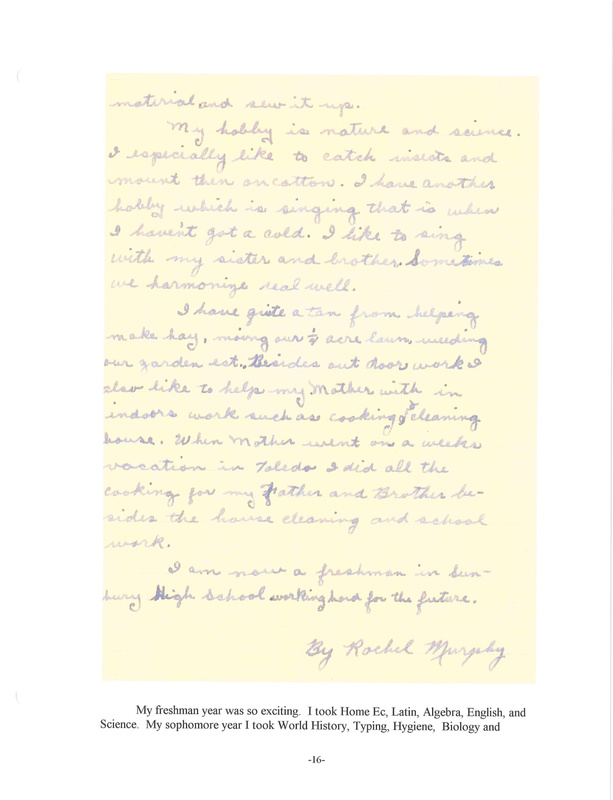 material and sew it up.
My hobby is nature and science.
I especially like to catch insects and
mount then on cotton. I have another
hobby which is singing that is when
I haven't got a cold. I like to sing
with my sister and brother. Sometimes
we harmonize real well.
I have quite a tan from helping
make hay, moing our ½ acre lawn, weeding
our garden ect., Besides out door work I
also like to help my Mother with in
indoors work such as cooking & cleaning
house. When Mother went on a weeks
vacation in Toledo I did all the
cooking for my Father and Brother be-
sides the house cleaning and school
work.
I am now a freshman in Sun-
bury High School working hard for the future.
By Rachel Murphy
My freshman year was so exciting. I took Home Ec, Latin, Algebra, English, and
Science. My sophomore year I took World History, Typing, Hygiene, Biology and
-16-